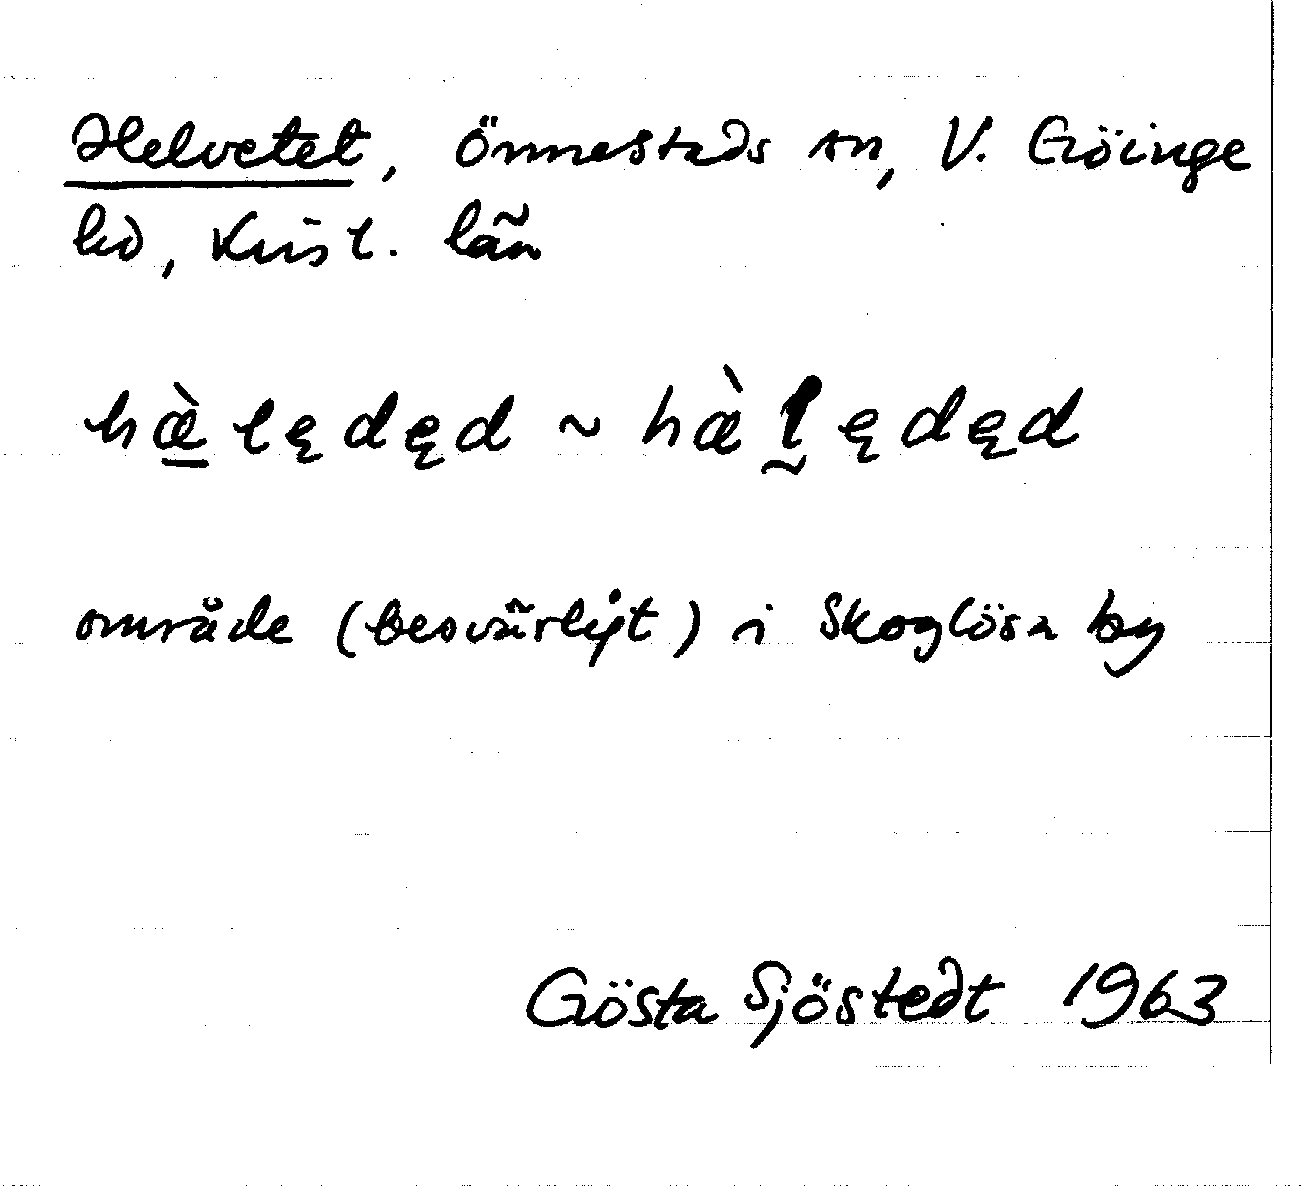 Helvetet, Önnestads sn, V. Göinge
hd, Krist. län
hæ̠̀lędęd ~ hæ̀l̰ędęd
område (besvärligt) i Skoglösa by
Gösta Sjöstedt 1963